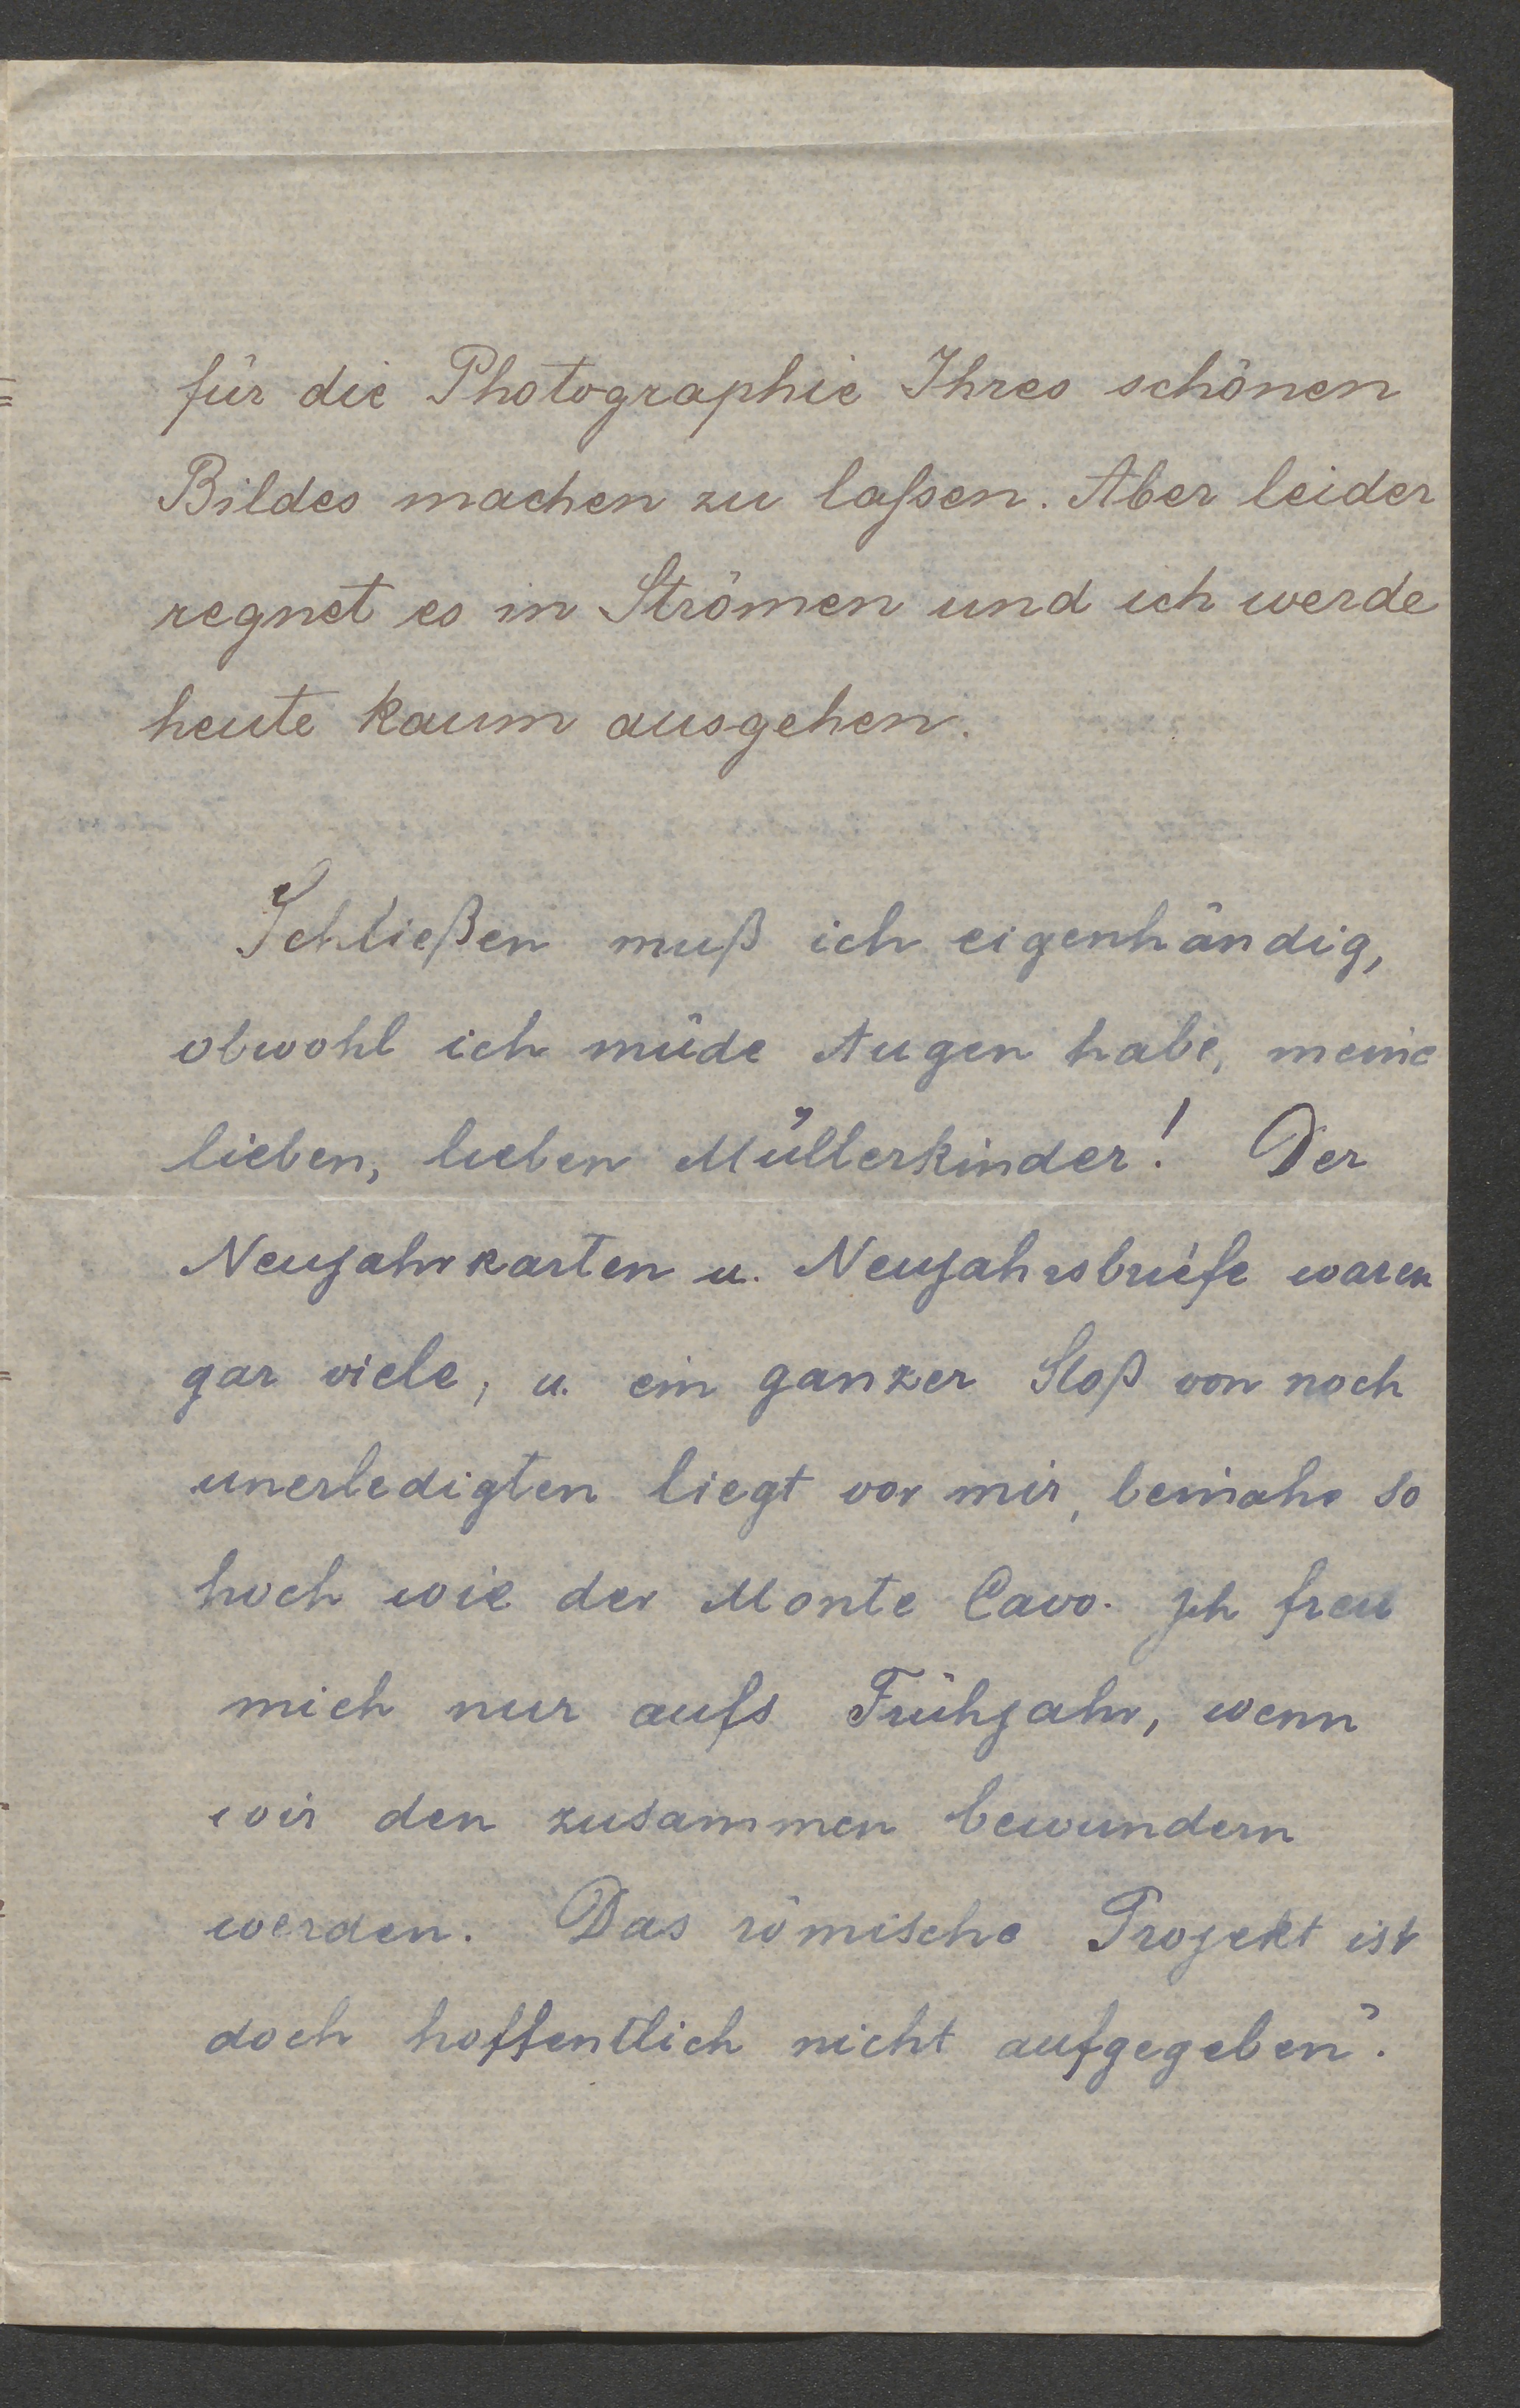 für die Photographie Ihres schönen
Bildes machen zu laſsen. Aber leider
regnet es in Strömen und ich werde
heute kaum ausgehen.
Schließen muß ich eigenhändig,
obwohl ich müde Augen habe, meine
lieben, lieben Müllerkinder! Der
Neujahrkarten u. Neujahrsbriefe waren
gar viele, u. ein ganzer Stoß von noch
unerledigten liegt vor mir, beinahe so
hoch wie der Monte Cavo. Ich freu
mich nur aufs Frühjahr, wenn
wir den zusammen bewundern
werden. Das römische Projekt ist
doch hoffentlich nicht aufgegeben?